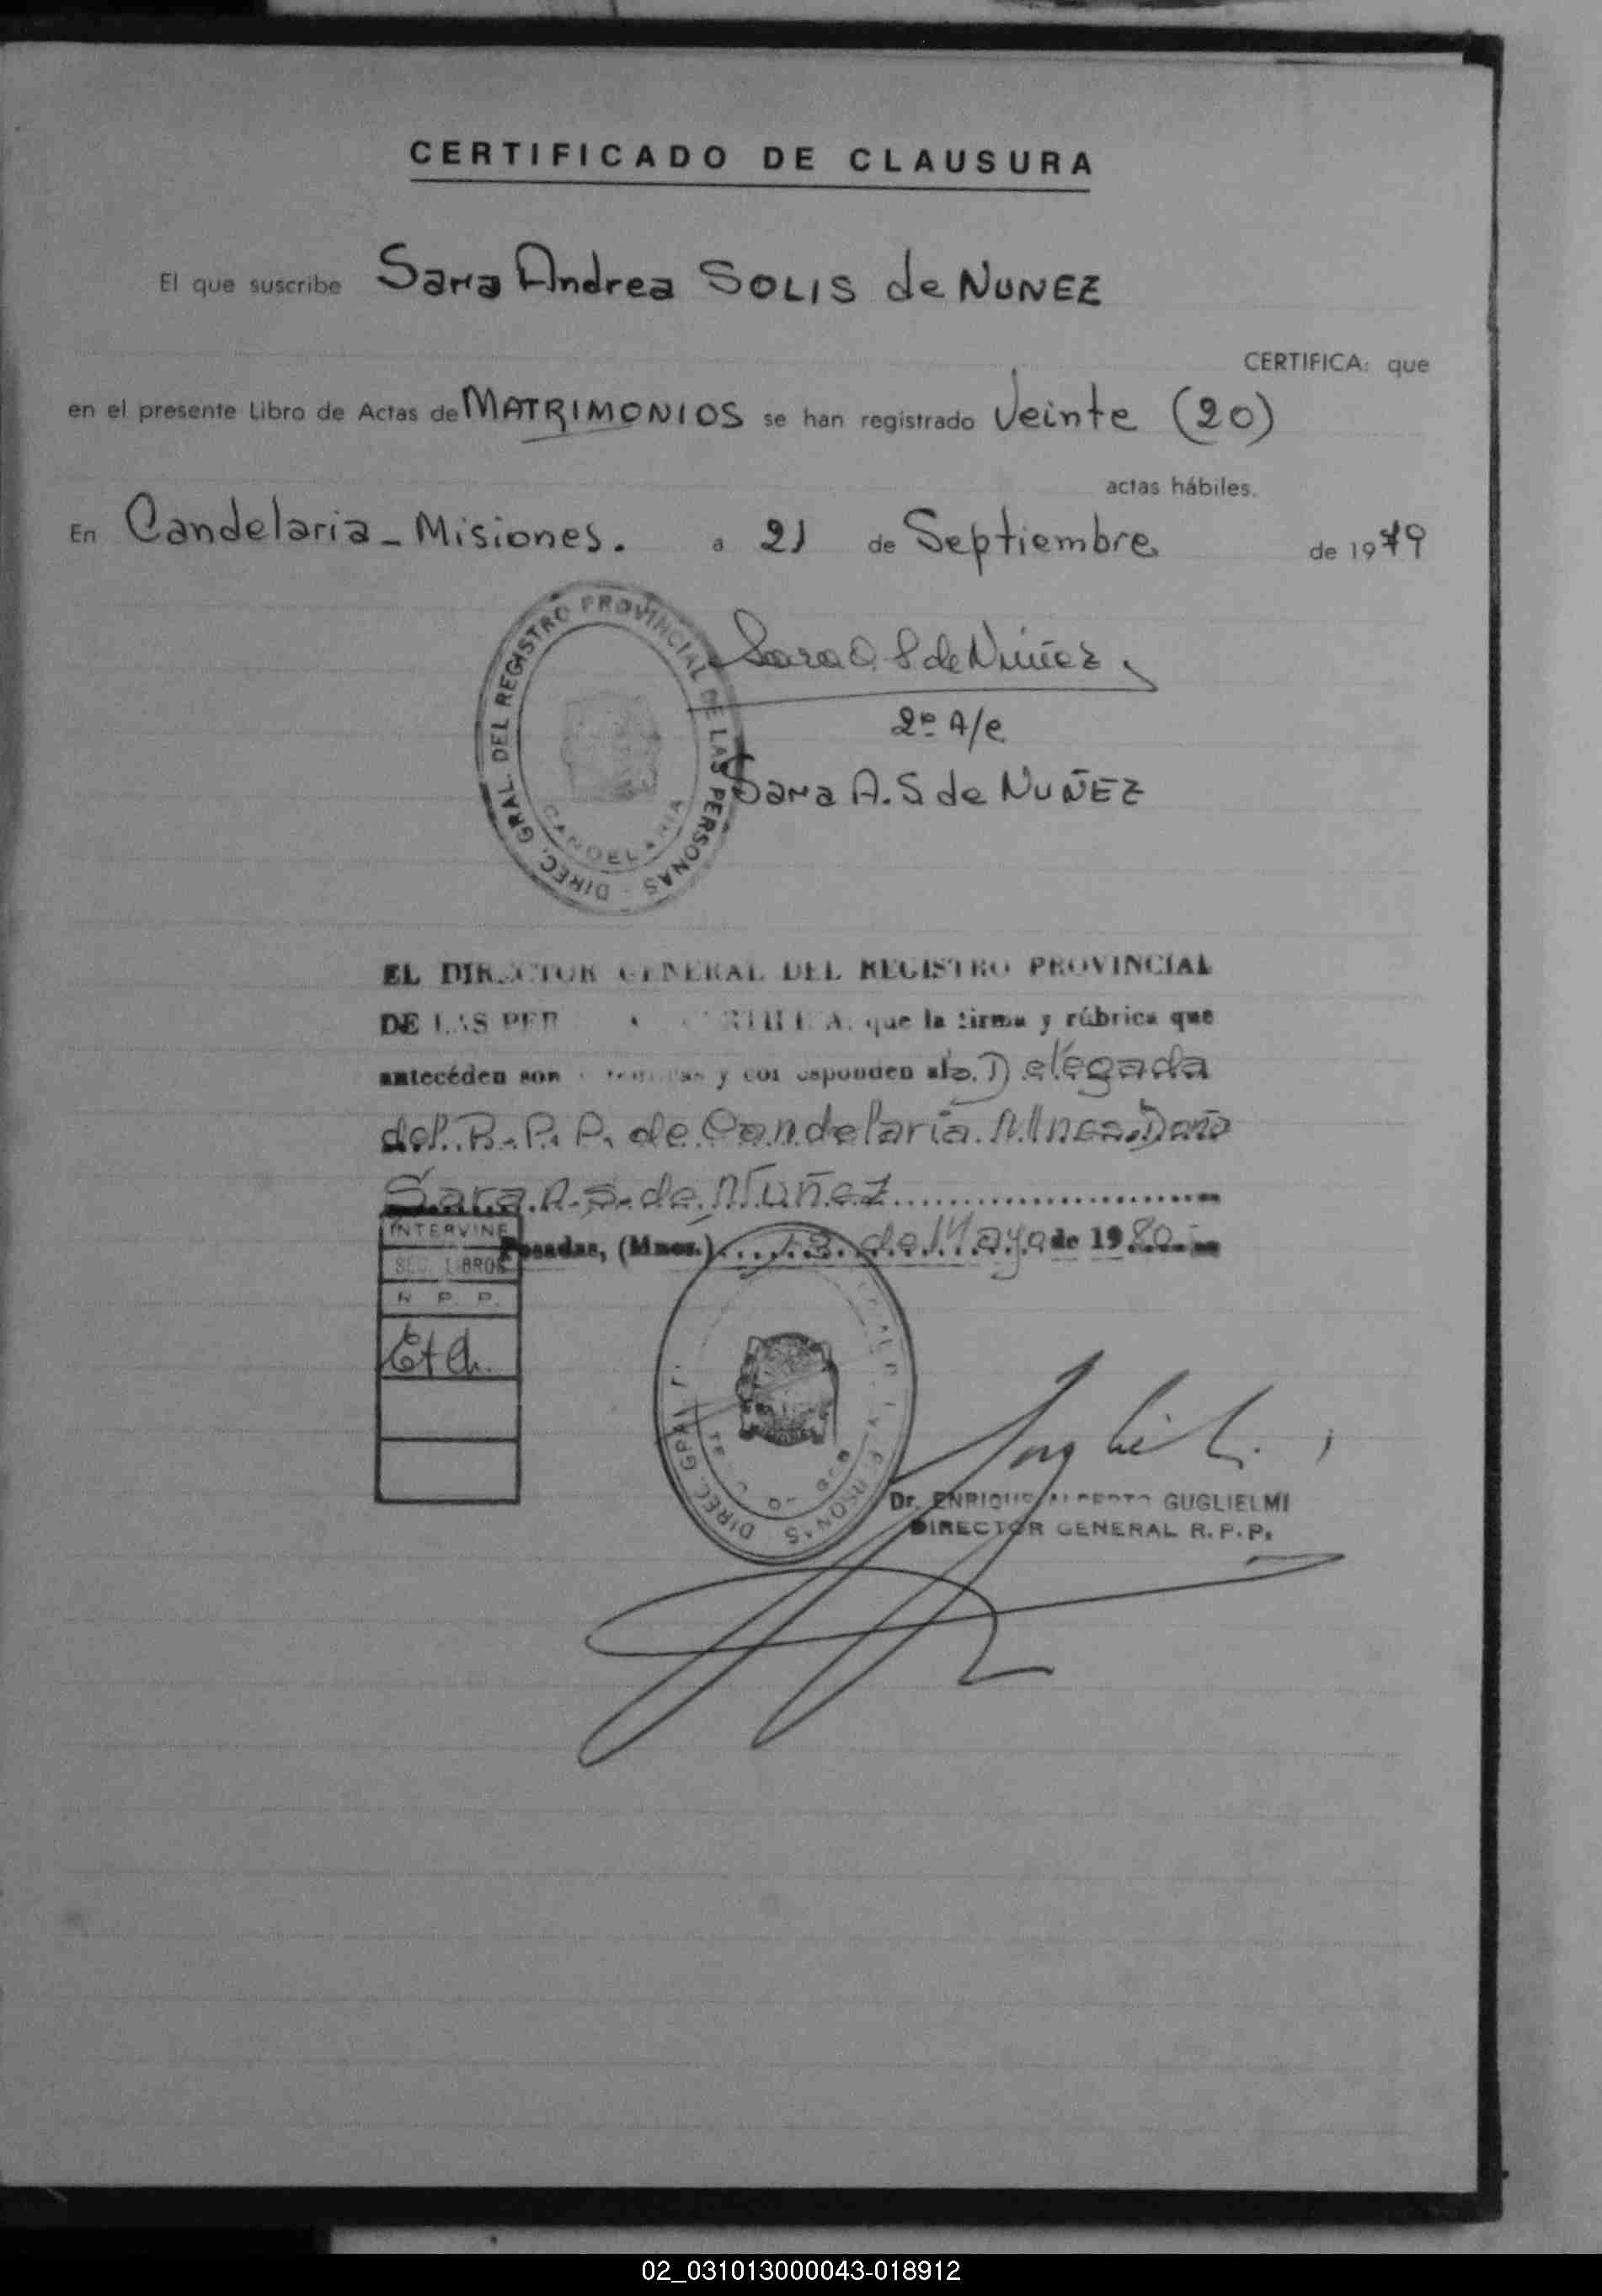 CERTIFICADO DE CLAUSURA
El que suscribe Sara Andrea SOLIS de NUNEZ
CERTIFICA: que
en el presente Libro de Actas de MATRIMONIOS se han registrado Veinte (20)
actas hábiles.
En Candelaria - Misiones. a 21 de Septiembre de 1979
DIREC. GRAL. DEL REGISTRO PROVINCIAL DE LAS PERSONAS
CANDELARIA
Sara A. S de Núñez
2º A/e
Sara A. S de NUÑEZ
EL DIRECTOR GENERAL DEL REGISTRO PROVINCIAL
DE LAS que la firma y rúbrica que
antecéden son y corresponden a la Delegada
del R. P. P. de Candelaria Mnes. Doña
Sara A. S. de Nuñez
INTERVINE
Posadas, (Mnes.) de Mayo de 1980
SEC. LIBROS
R P P.
DIREC. GRAL.
Dr. ENRIQUE ALBERTO GUGLIELMI
DIRECTOR GENERAL R. P. P.
02_031013000043-018912